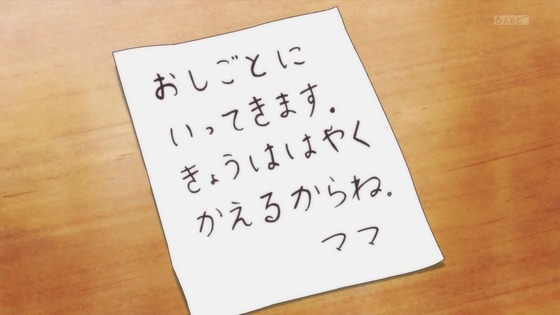 6 ABC
おしごとに
いってきます。
きょうははやく
かえるからね。
ママ